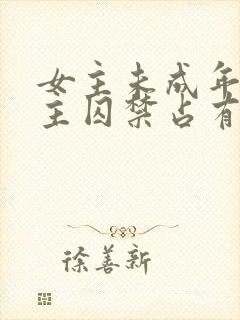 女主未成年
主囚禁占有
徐善新